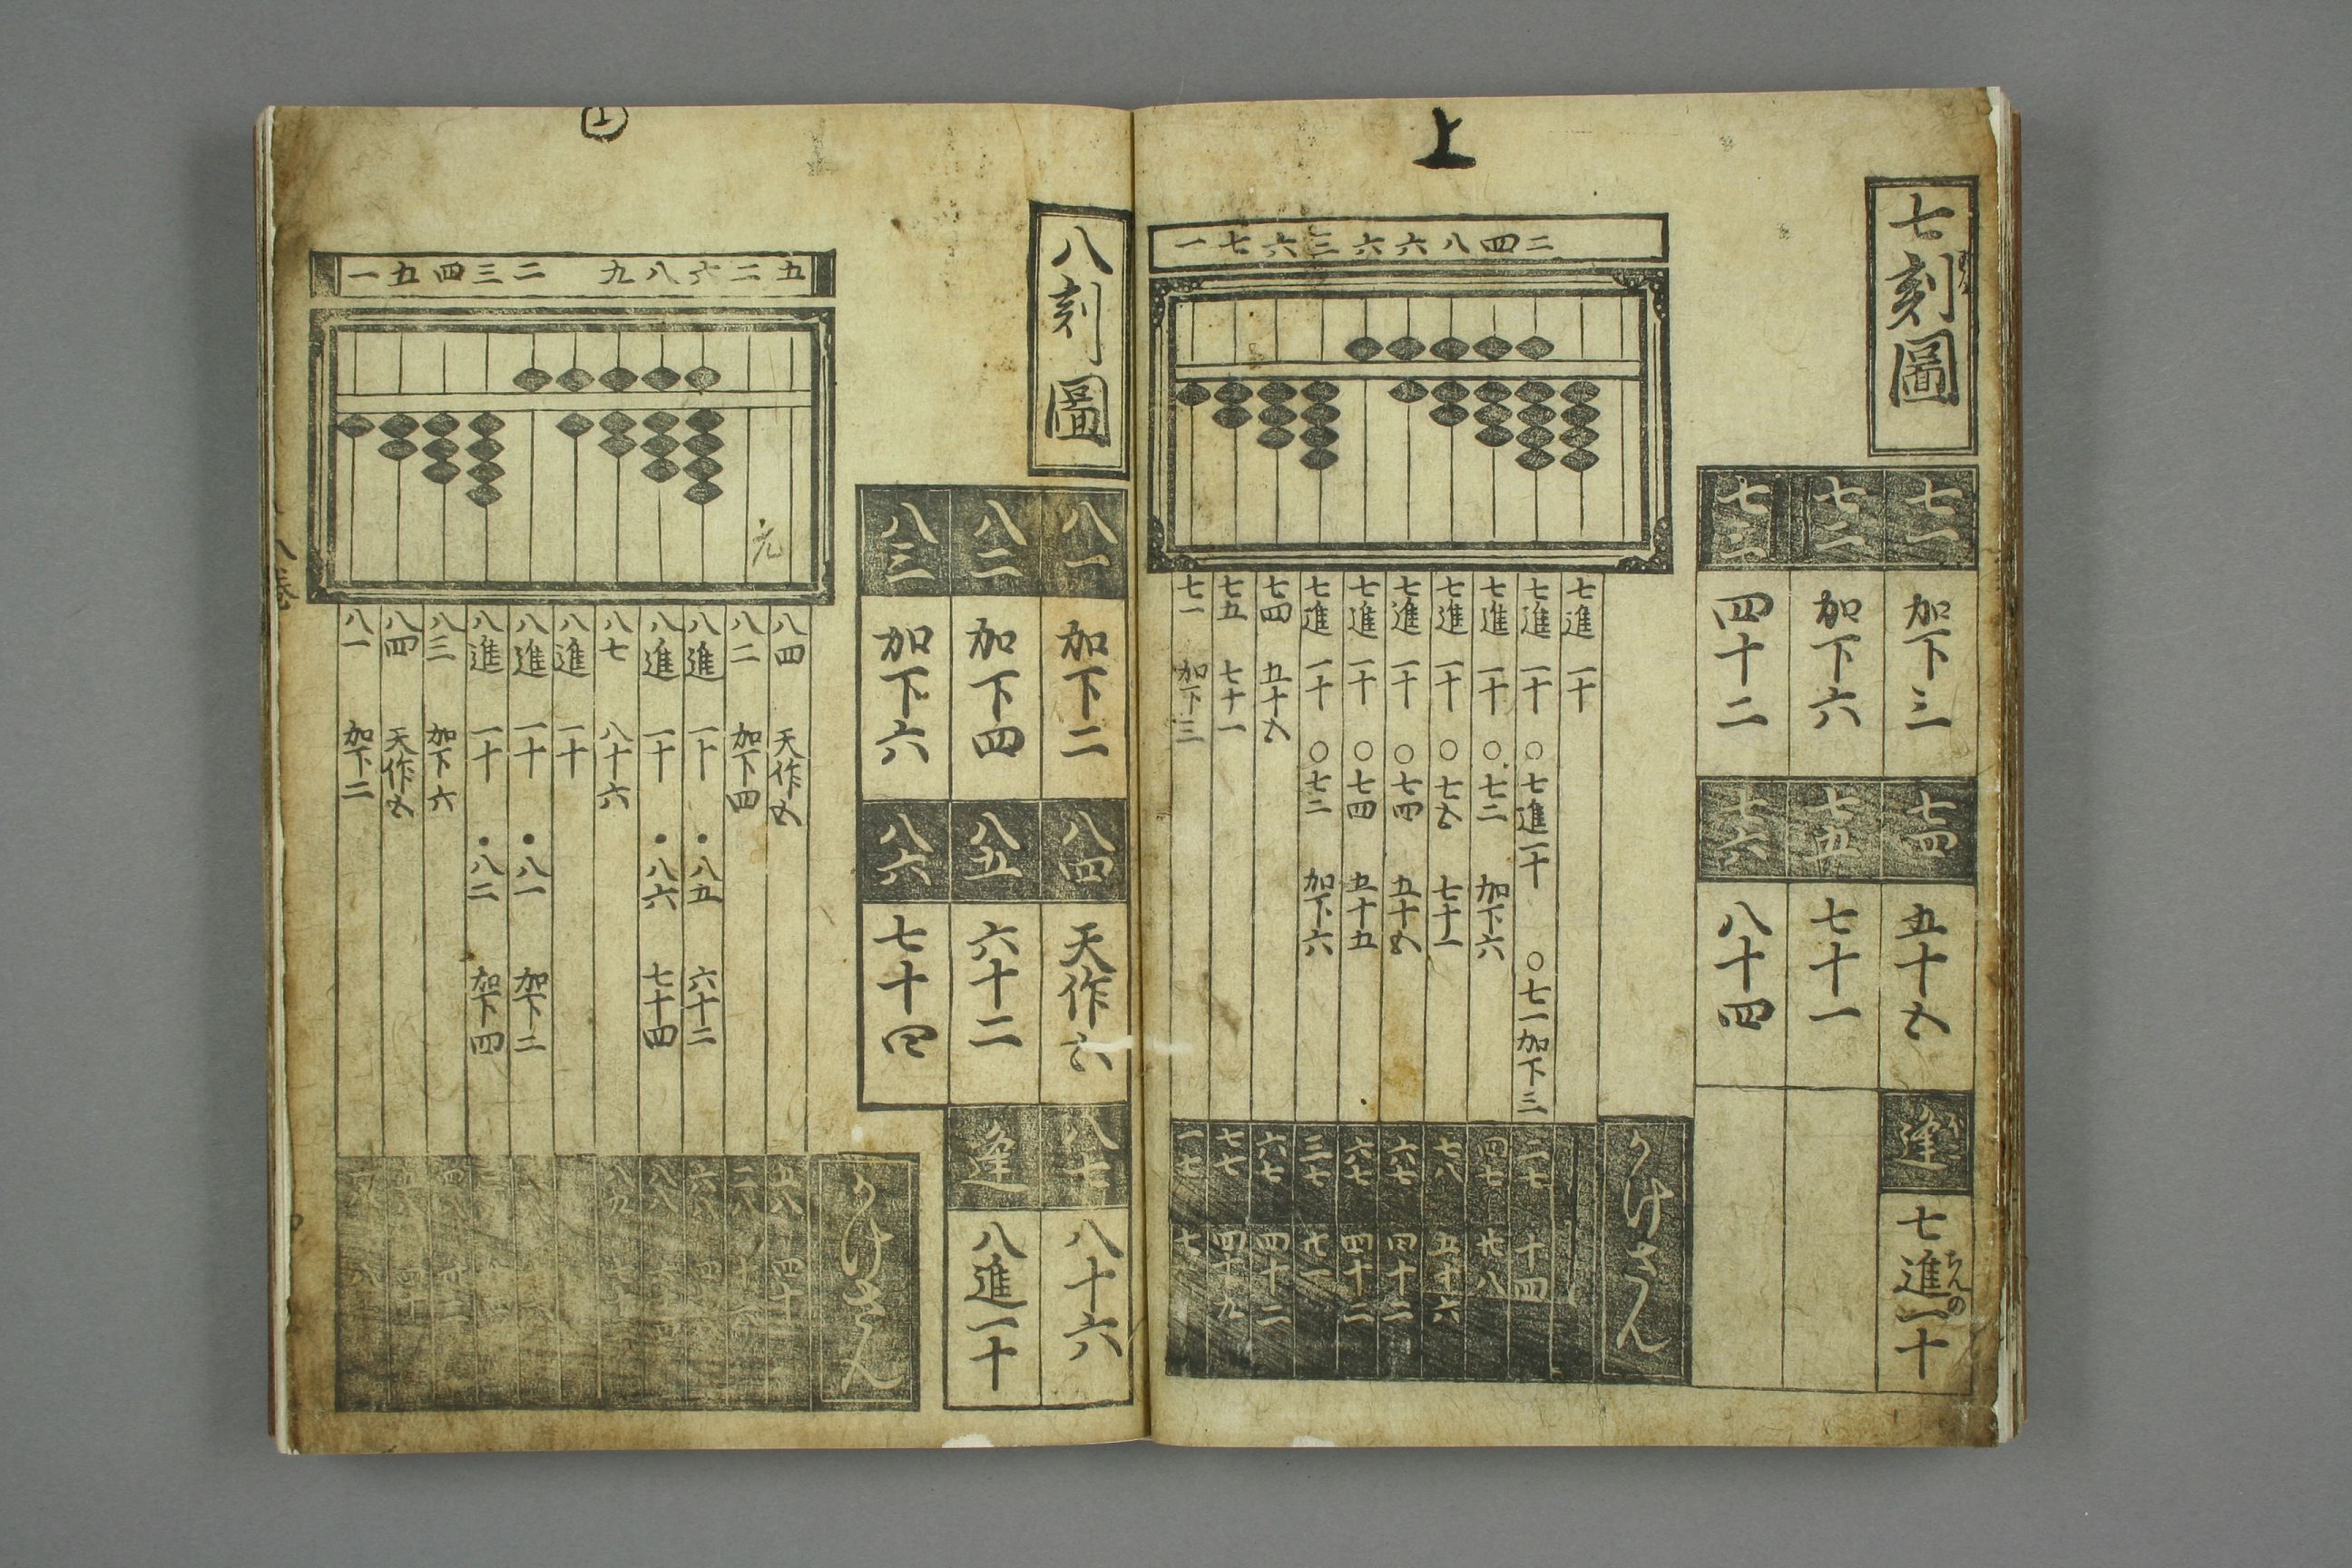 上
七刻圖
七一
加下三
七二
加下六
七三
四十二
七四
五十五
七五
七十一
七六
八十四
逢
七進一十
ちんの
一七六三六六八四二
七進 一十
七進 一十 〇七進一十 〇七一加下三
七進 一十 〇七二 加下六
七進 一十 〇七五 七十一
七進 一十 〇七四 五十五
七進 一十 〇七四 五十五
七進 一十 〇七二 加下六
七四 五十五
七五 七十一
七一 加下三
かけさん
二七 十四
四七 廿八
七八 五十六
六七 四十二
六七 四十二
三七 廿一
六七 四十二
七七 四十九
一七 七
八刻圖
八一
加下二
八二
加下四
八三
加下六
八四
天作五
八五
六十二
八六
七十四
八七
八十六
逢
八進一十
上
一五四三二 九八六二五
八四 天作五
八二 加下四
八進 一十 ・八五 六十二
八進 一十 ・八六 七十四
八七 八十六
八進 一十
八進 一十 ・八一 加下二
八進 一十 ・八二 加下四
八三 加下六
八四 天作五
八一 加下二
かけさん
五八 四十
二八 十六